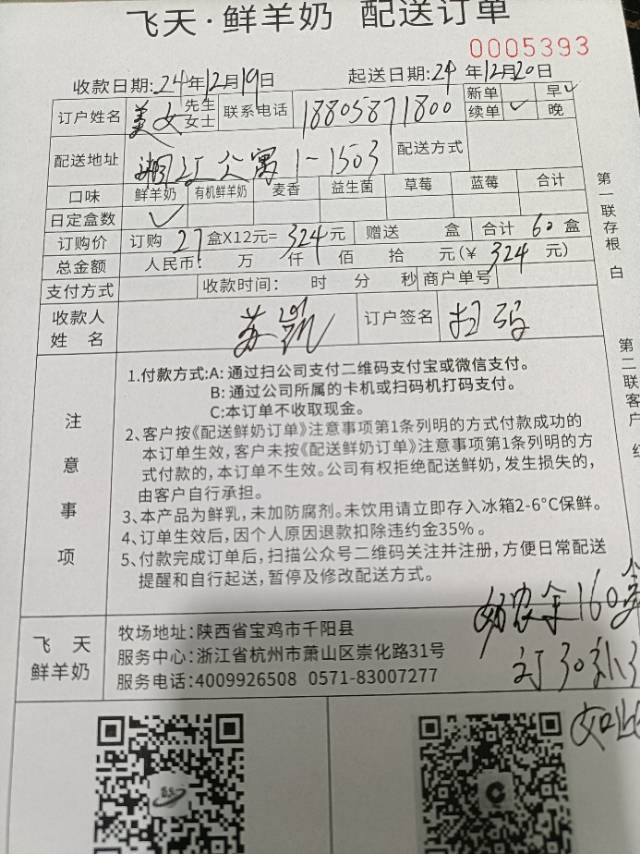 飞天·鲜羊奶 配送订单
0005393
收款日期:24年12月19日 起送日期:24年12月20日
订户姓名 美女 先生 女士 联系电话 18805871800 新单 续单✓ 早✓ 晚
配送地址 湘江公寓1-1503 配送方式
口味 鲜羊奶 有机鲜羊奶 麦香 益生菌 草莓 蓝莓 合计
日定盒数 ✓
订购价 订购27盒X12元=324元 赠送 盒 合计60盒
总金额 人民币: 万 仟 佰 拾 元(¥324元)
支付方式 收款时间: 时 分 秒 商户单号
收款人 姓名 苏凯 订户签名 扫码
注意事项
1.付款方式:A: 通过扫公司支付二维码支付宝或微信支付。
B: 通过公司所属的卡机或扫码机打码支付。
C:本订单不收取现金。
2、客户按《配送鲜奶订单》注意事项第1条列明的方式付款成功的
本订单生效,客户未按《配送鲜奶订单》注意事项第1条列明的方
式付款的,本订单不生效。公司有权拒绝配送鲜奶,发生损失的,
由客户自行承担。
3、本产品为鲜乳,未加防腐剂。未饮用请立即存入冰箱2-6°C保鲜。
4、订单生效后,因个人原因退款扣除违约金35%。
5、付款完成订单后,扫描公众号二维码关注并注册,方便日常配送
提醒和自行起送,暂停及修改配送方式。
飞天
鲜羊奶
牧场地址:陕西省宝鸡市千阳县
服务中心:浙江省杭州市萧山区崇化路31号
服务电话:4009926508 0571-83007277
余160
订30补
如此
第一联存根 白
第二联客户 红